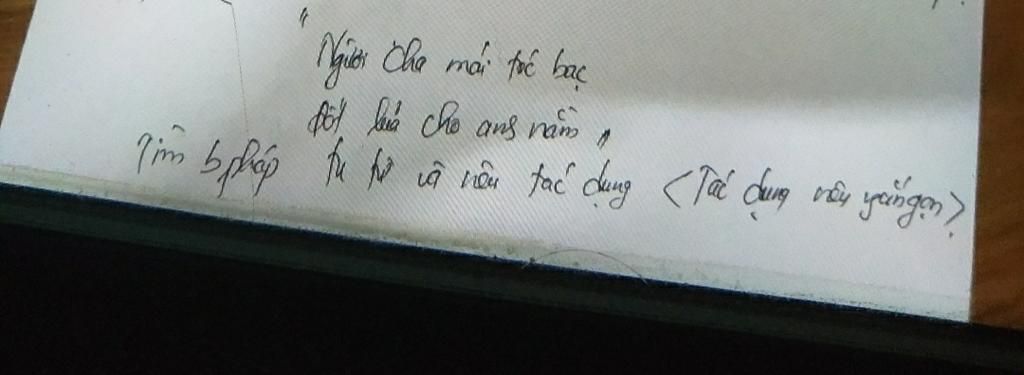 "
Người Cha mái tóc bạc
Đốt lửa cho anh nằm "
Tìm b.pháp tu từ và nêu tác dụng <Tác dụng nêu ngắn gọn>.